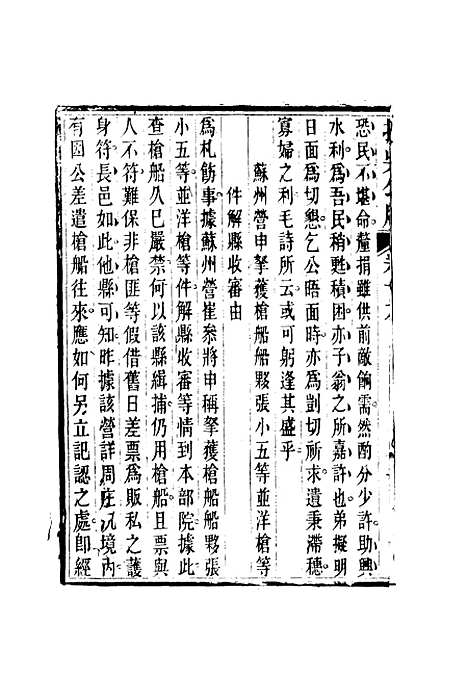 恐民不堪命釐捐雖供前敵餉需然酌分少許助興
水利爲吾民稍甦積困亦子翁之所嘉許也弟擬明
日面爲切懇乞公晤面時亦爲剴切祈求遺秉滯穗
寡婦之利毛詩所云或可躬逢其盛乎
蘇州營申拏獲槍船船夥張小五等並洋槍等
件解縣收審由
爲札飭事據蘇州營崔叅將申稱拏獲槍船船夥張
小五等並洋槍等件解縣收審等情到本部院據此
查槍船久已嚴禁何以該縣緝捕仍用槍船且票與
人不符難保非槍匪等假借舊日差票爲販私之護
身符長邑如此他縣可知昨據該營詳周庄汛境內
有因公差遣槍船往來應如何另立記認之處卽經